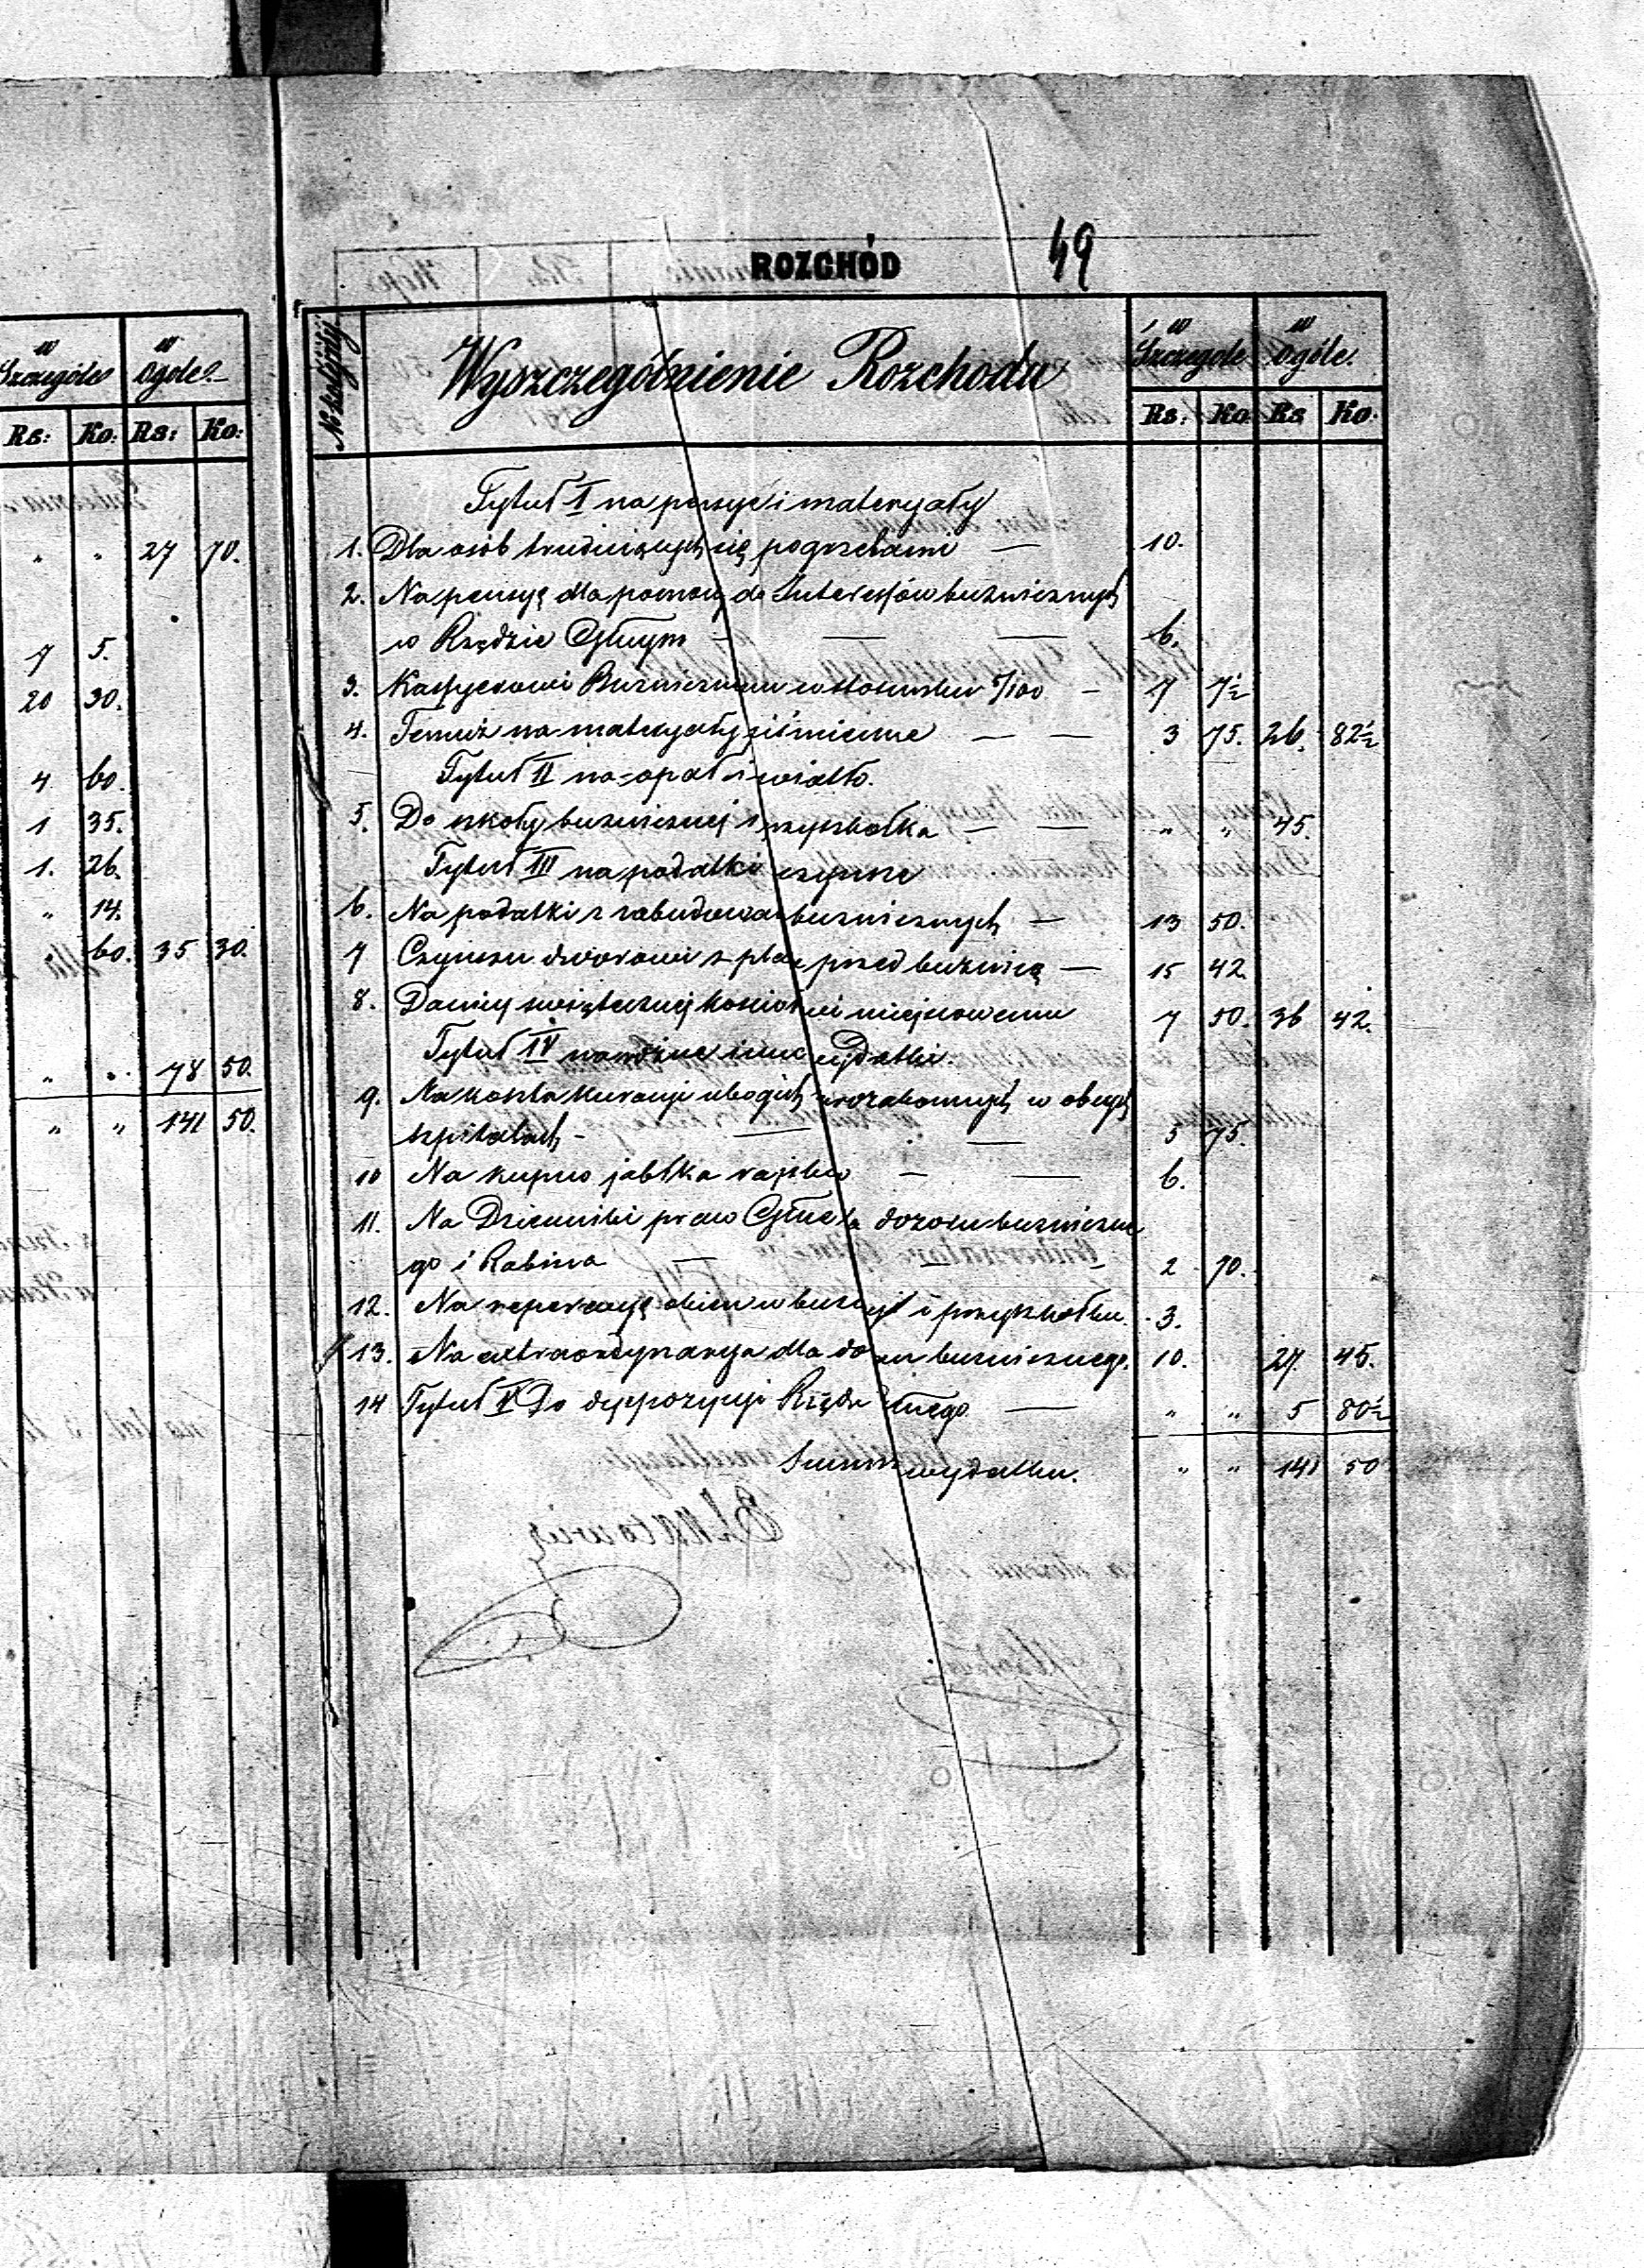 w Szczególe w Ogóle
Rs: Ko: Rs: Ko:
" " 27 70.
7 5.
20 30.
4 60.
1 35.
1. 26.
" 14.
" 60. 35 30.
" " 78 50.
" " 141 50.
ROZCHÓD 49
No kolejny Wyszczególnienie Rozchodu w Szczególe w ogóle.
Rs: Ko: Rs Ko:
Tytuł I na pensye i materyały
1. Dla osób trudniących się pogrzebami — 10.
2. Na pensyę dla pomocy do Interessów bużnicznych
w Rządzie Głnym — — — 6.
3. Kassyerowi Bużnicznemu w stosunku 5/100 — 7 7½
4. Temuż na materyały piśmienne — — 3 75. 26. 82½
Tytuł II na opał i światło.
5. Do szkoły bużnicznej i przyszkołka — — " " 45.
Tytuł III na podatki czynsze
6. Na podatki z zabudowań bużnicznych — 13 50.
7 Czynszu dworowi z placu przed bużnicą — 15 42
8. Daniny świątecznej kościołowi miejscowemu 7 50. 36 42.
Tytuł IV na różne inne wydatki.
9. Na koszta kuracyi ubogich w obcych
szpitalach — — — 5 75.
10 Na kupno jabłka rajskiego — — 6.
11. Na Dzienniki praw Głne dla dozoru bużniczne
go i Rabina — — — 2 70.
12. Na reperacyę okien w bużnicy i przyszkołku. 3.
13. Na extraordynarya dla dozoru bużnicznego. 10. 27. 45.
14 Tytuł V Do dyspozycyi Rządu Głnego — " " 5 80½
Summa wydatku. " " 141 50